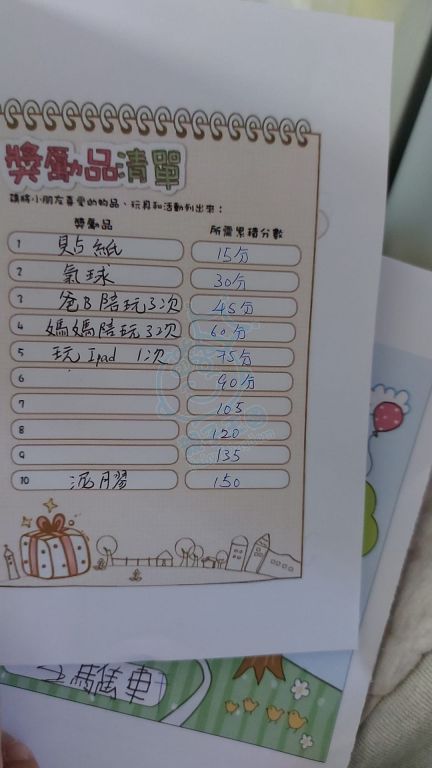 獎勵品清單
請將小朋友喜愛的物品、玩具和活動列出來：
獎勵品 所需累積分數
1 貼紙 15分
2 氣球 30分
3 爸B陪玩3次 45分
4 媽媽陪玩32次 60分
5 玩Ipad 1次 75分
6 90分
7 105
8 120
9 135
10 泥膠 150
騎車